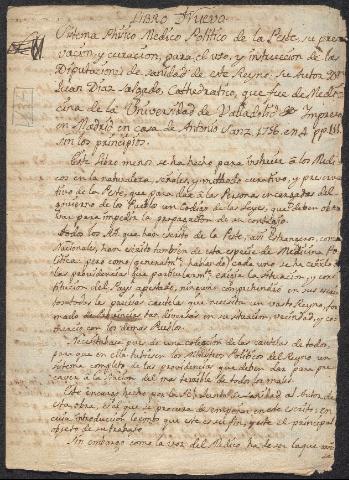 LIBRO Nuevo.
Sistema Phisico Medico Politico de la Peste, su preser
vacion, y curacion, para el uso, y instruccion de las
Diputaciones de sanidad de este Reyno, su Autor Dn
Juan Diaz Salgado, Cathedratico, que fue de Medi-
cina de la Universidad de Valladolid Impreso
en Madrid en casa de Antonio Sanz 1756 en 4
con los principios.
Este libro menos se ha hecho para instruir á los Medi-
cos en la naturaleza, señales, y methodo curativo, y preserva-
tivo de la Peste, que para dar á las Personas encargadas del
govierno de los Pueblos un Codigo de las Leyes, que deben obser
var para impedir la propagacion de su contagio.
Todos los AA. que han escrito de la Peste, assi Estrangeros, como
Nacionales, han escrito tambien de esta especie de Medicina Po
litica: pero como (generalmte hablando) cada uno se ha ceñido
las providencias que particularmte exigia la situacion, y cons-
titucion del Pays apestado, ninguno comprehendió en sus escri
tos todas las precisas cautelas que necesita un vasto Reyno, for
mado de Provincias tan diversas en su situacion, vecindad, y co
mercio con los demas Pueblos.
Necesitabase pues de una coleccion de las cautelas de todos,
para que en ella tubiesen los Ministros Politicos del Reyno un
sistema completo de las providencias que deben dar para pre
caver á la Nacion del mas terrible de todos los males.
Este encargo hecho por la Rl Junta de Sanidad al Autor de
esta obra, es el que se procura desempeñar en este escrito; en
cuia introduccion como que este es su fin, y este el principal
objeto de su trabajo.
Sin embargo como la voz del Medico ha de ser la que